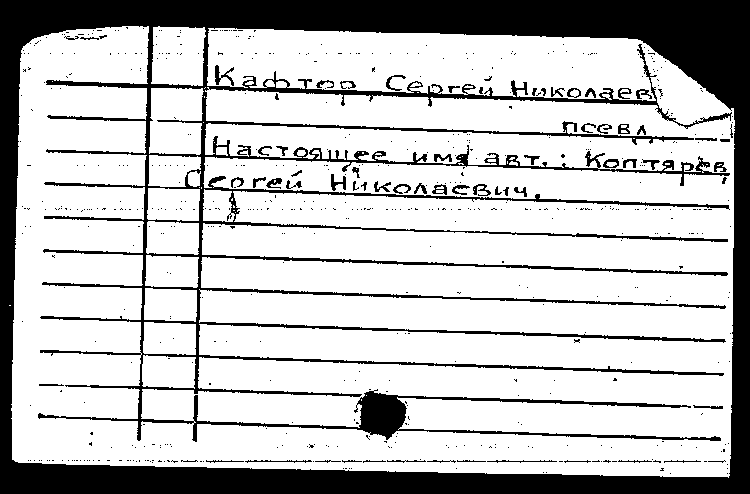 Кафтор, Сергей Николаев
псевд.
Настоящее имя авт.: Коптярев,
Сергей Николаевич.